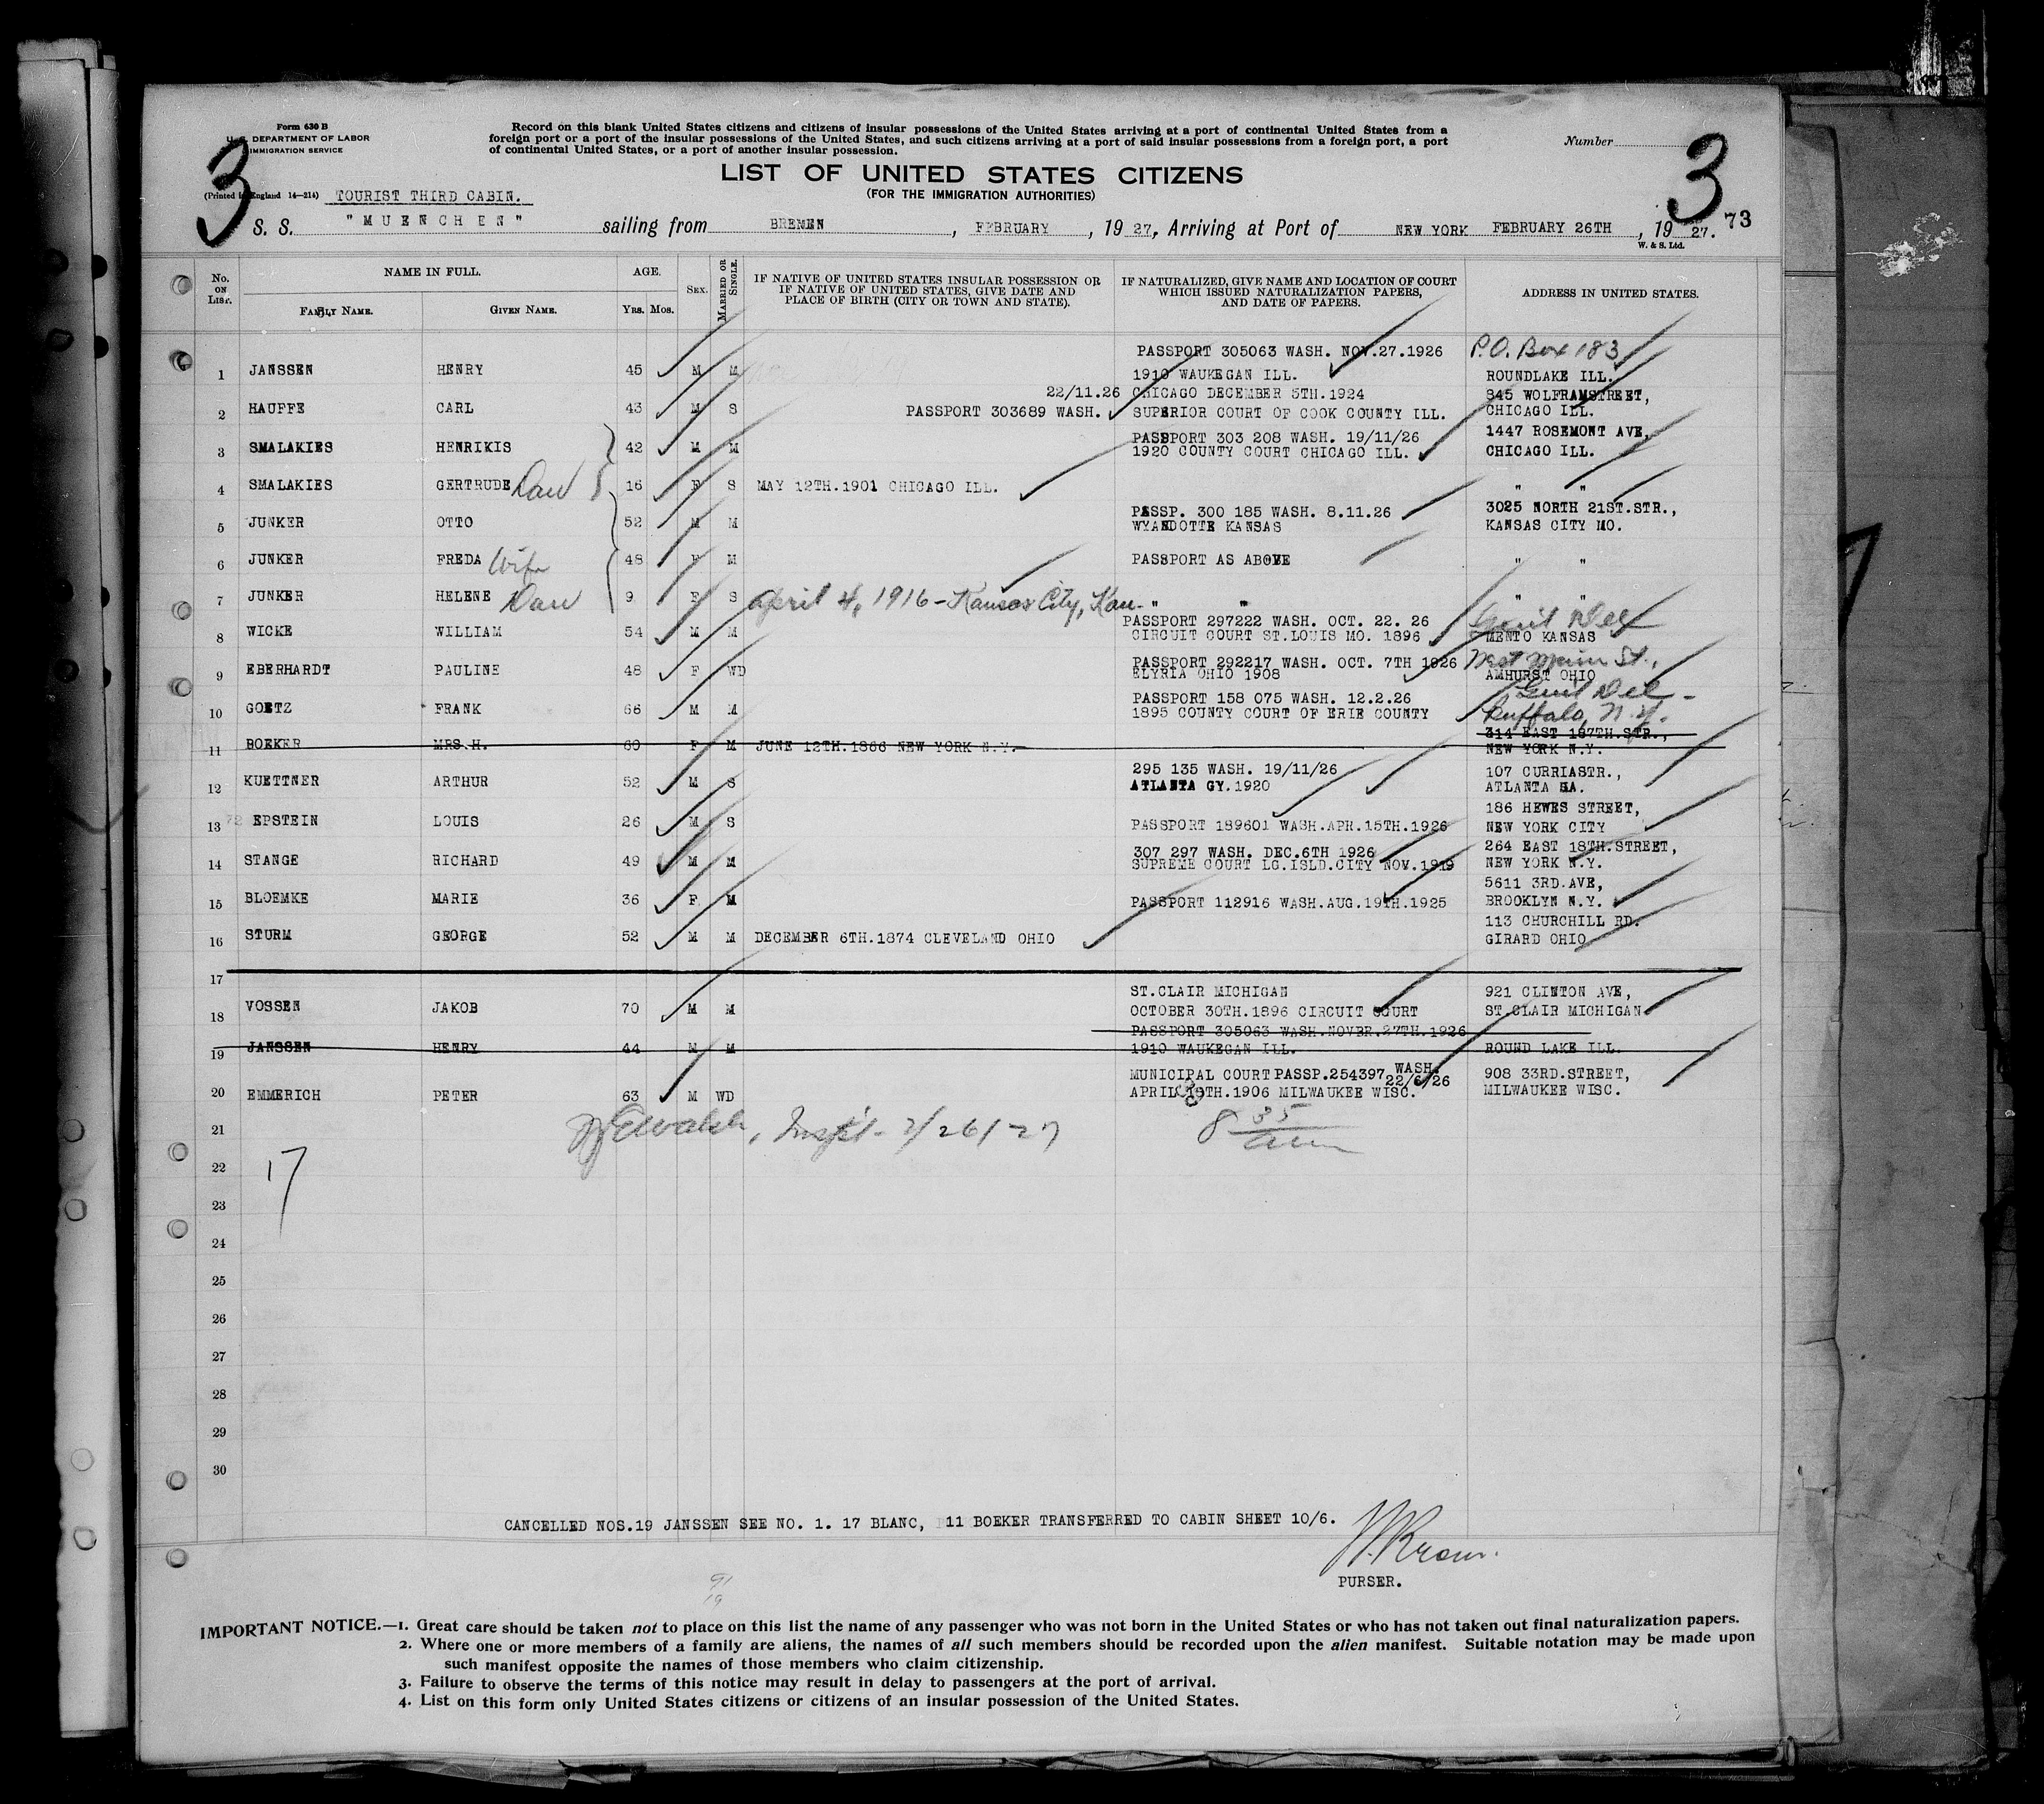 Form 630 B
U. S. DEPARTMENT OF LABOR
IMMIGRATION SERVICE
(Printed in England 14—214)
3
Record on this blank United States citizens and citizens of insular possessions of the United States arriving at a port of continental United States from a
foreign port or a port of the insular possessions of the United States, and such citizens arriving at a port of said insular possessions from a foreign port, a port
of continental United States, or a port of another insular possession.
Number
3
LIST OF UNITED STATES CITIZENS
(FOR THE IMMIGRATION AUTHORITIES)
TOURIST THIRD CABIN.
S. S. "MUENCHEN" sailing from BREMEN, FEBRUARY, 1927, Arriving at Port of NEW YORK FEBRUARY 26TH, 1927. 73
W. & S. Ltd.
No. ON LIST. NAME IN FULL. FAMILY NAME. GIVEN NAME. AGE. YRS. MOS. SEX. MARRIED OR SINGLE. IF NATIVE OF UNITED STATES INSULAR POSSESSION OR IF NATIVE OF UNITED STATES, GIVE DATE AND PLACE OF BIRTH (CITY OR TOWN AND STATE). IF NATURALIZED, GIVE NAME AND LOCATION OF COURT WHICH ISSUED NATURALIZATION PAPERS, AND DATE OF PAPERS. ADDRESS IN UNITED STATES.
PASSPORT 305063 WASH. NOV.27.1926 P.O. Box 183
1 JANSSEN HENRY 45 M M 1910 WAUKEGAN ILL. ROUNDLAKE ILL.
22/11.26 CHICAGO DECEMBER 5TH.1924 845 WOLFRAMSTREET,
2 HAUFFE CARL 43 M S PASSPORT 303689 WASH. SUPERIOR COURT OF COOK COUNTY ILL. CHICAGO ILL.
PASSPORT 303 208 WASH. 19/11/26 1447 ROSEMONT AVE,
3 SMALAKIES HENRIKIS 42 M M 1920 COUNTY COURT CHICAGO ILL. CHICAGO ILL.
4 SMALAKIES GERTRUDE Dau 16 F S MAY 12TH.1901 CHICAGO ILL. " "
PASSP. 300 185 WASH. 8.11.26 3025 NORTH 21ST.STR.,
5 JUNKER OTTO 52 M M WYANDOTTE KANSAS KANSAS CITY MO.
6 JUNKER FREDA Wife 48 F M PASSPORT AS ABOVE " "
7 JUNKER HELENE Dau 9 F S April 4, 1916 - Kansas City, Kan. " " " "
PASSPORT 297222 WASH. OCT. 22. 26 Genl Del
8 WICKE WILLIAM 54 M M CIRCUIT COURT ST.LOUIS MO. 1896 MENTO KANSAS
PASSPORT 292217 WASH. OCT. 7TH 1926 West Main St.,
9 EBERHARDT PAULINE 48 F WD ELYRIA OHIO 1908 AMHURST OHIO
PASSPORT 158 075 WASH. 12.2.26 Genl Del -
10 GOETZ FRANK 66 M M 1895 COUNTY COURT OF ERIE COUNTY Buffalo, N.Y.
314 EAST 187TH.STR.,
11 BOEKER MRS H. 60 F M JUNE 12TH.1866 NEW YORK N.Y. NEW YORK N.Y.
295 135 WASH. 19/11/26 107 CURRIASTR.,
12 KUETTNER ARTHUR 52 M S ATLANTA GY.1920 ATLANTA GA.
186 HEWES STREET,
13 EPSTEIN LOUIS 26 M S PASSPORT 189601 WASH.APR.15TH.1926 NEW YORK CITY
307 297 WASH. DEC.6TH 1926 264 EAST 18TH.STREET,
14 STANGE RICHARD 49 M M SUPREME COURT LG.ISLD.CITY NOV.1919 NEW YORK N.Y.
5611 3RD.AVE,
15 BLOEMKE MARIE 36 F M PASSPORT 112916 WASH.AUG.19TH.1925 BROOKLYN N.Y.
113 CHURCHILL RD.
16 STURM GEORGE 52 M M DECEMBER 6TH.1874 CLEVELAND OHIO GIRARD OHIO
17
ST.CLAIR MICHIGAN 921 CLINTON AVE,
18 VOSSEN JAKOB 70 M M OCTOBER 30TH.1896 CIRCUIT COURT ST.CLAIR MICHIGAN
PASSPORT 305063 WASH.NOVBR.27TH.1926
19 JANSSEN HENRY 44 M M 1910 WAUKEGAN ILL. ROUND LAKE ILL.
MUNICIPAL COURT PASSP.254397 WASH. 22/6/26 908 33RD.STREET,
20 EMMERICH PETER 63 M WD APRIL 19TH.1906 MILWAUKEE WISC. MILWAUKEE WISC.
21 Walsh, Insp't. 2/26/27 8 35
22
17
23
24
25
26
27
28
29
30
CANCELLED NOS.19 JANSSEN SEE NO. 1. 17 BLANC, 11 BOEKER TRANSFERRED TO CABIN SHEET 10/6.
PURSER.
91
19
IMPORTANT NOTICE.—1. Great care should be taken not to place on this list the name of any passenger who was not born in the United States or who has not taken out final naturalization papers.
2. Where one or more members of a family are aliens, the names of all such members should be recorded upon the alien manifest. Suitable notation may be made upon
such manifest opposite the names of those members who claim citizenship.
3. Failure to observe the terms of this notice may result in delay to passengers at the port of arrival.
4. List on this form only United States citizens or citizens of an insular possession of the United States.